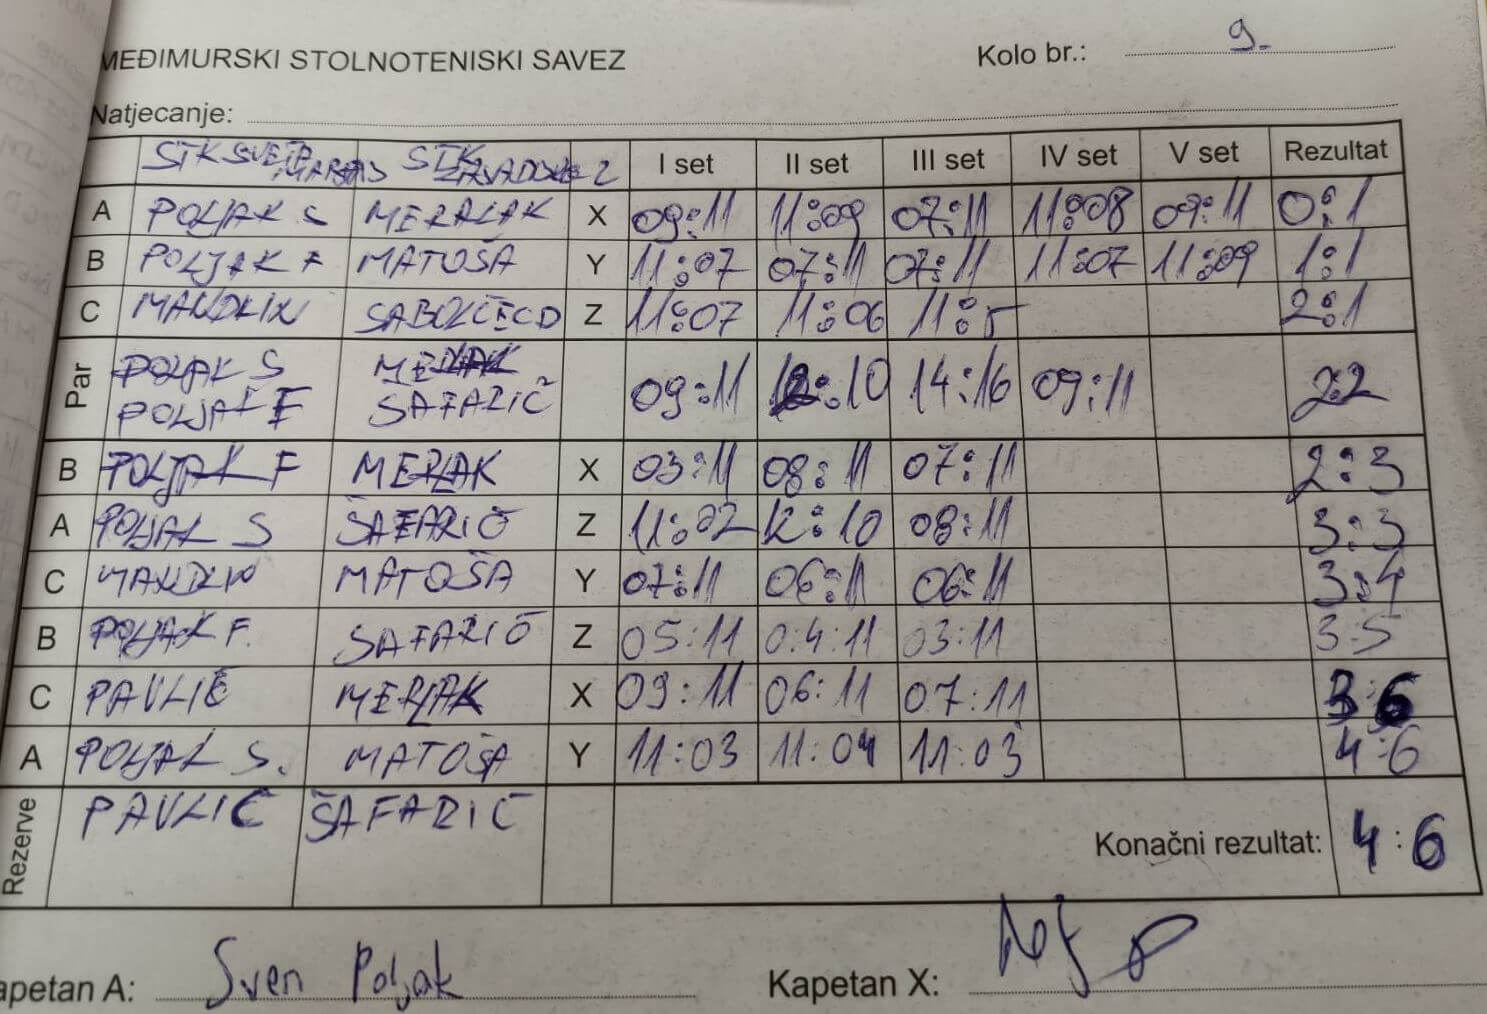 MEĐIMURSKI STOLNOTENISKI SAVEZ
Kolo br.: 9.
Natjecanje:
STK STK 2 I set II set III set IV set V set Rezultat
A POLJAK S MERLAK X 09:11 11:09 07:11 11:08 09:11 0:1
B POLJAK F MATOŠA Y 11:07 07:11 07:11 11:07 11:09 1:1
C Z 11:07 11:06 11:5 2:1
Par POLJAK S MERLAK 09:11 12:10 14:16 09:11 2:2
POLJAK F ŠAFARIĆ
B POLJAK F MERLAK X 03:11 08:11 07:11 2:3
A POLJAK S ŠAFARIĆ Z 11:02 12:10 08:11 3:3
C MATOŠA Y 07:11 06:11 06:11 3:4
B POLJAK F. ŠAFARIĆ Z 05:11 0:4:11 03:11 3:5
C PAVLIĆ MERLAK X 09:11 06:11 07:11 3:6
A POLJAK S. MATOŠA Y 11:03 11:04 11:03 4:6
Rezerve PAVLIĆ ŠAFARIĆ Konačni rezultat: 4:6
apetan A: Sven Poljak Kapetan X: